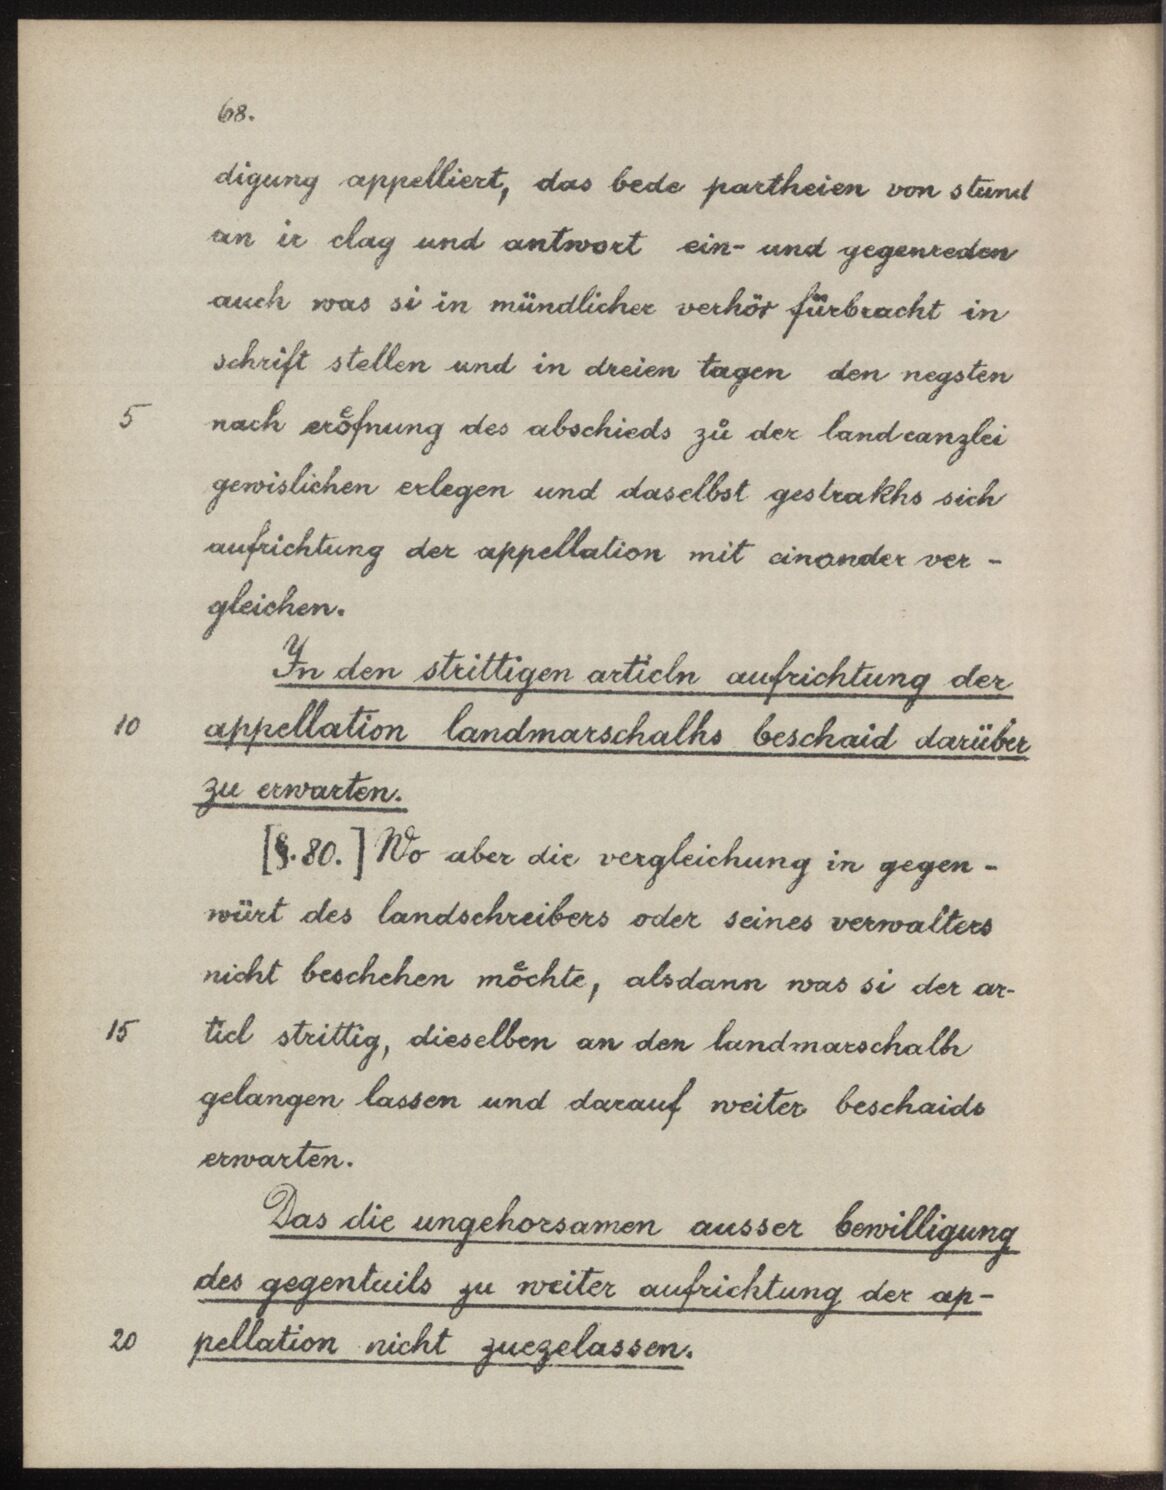 68.
digung appelliert, das bede partheien von stund
an ir clag und antwort ein- und gegenreden
auch was si in mündlicher verhör fürbracht in
schrift stellen und in dreien tagen den negsten
5 nach eroͤfnung des abschieds zů der landcanzlei
gewislichen erlegen und daselbst gestrakhs sich
aufrichtung der appellation mit einander ver-
gleichen.
In den strittigen articln aufrichtung der
10 appellation landmarschalhs beschaid darüber
zu erwarten.
[§. 80.] Wo aber die vergleichung in gegen-
würt des landschreibers oder seines verwalters
nicht beschehen moͤchte, alsdann was si der ar-
15 ticl strittig, dieselben an den landmarschalh
gelangen lassen und darauf weiter beschaids
erwarten.
Das die ungehorsamen ausser bewilligung
des gegentails zu weiter aufrichtung der ap-
20 pellation nicht zuezelassen.